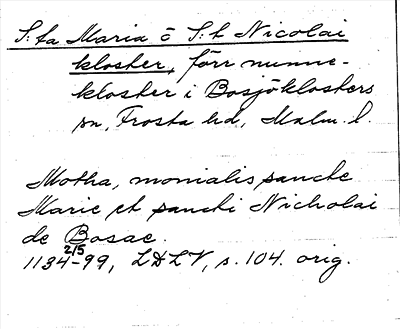 S:ta Maria o S:t Nicolai
kloster, förr nunne-
kloster i Bosjöklosters
sn, Frosta hd, Malm. l.
Motha, monialis sancte
Marie et sancti Nicholai
de Bosae.
2/5
1134-99, LDLV, s. 104. orig.